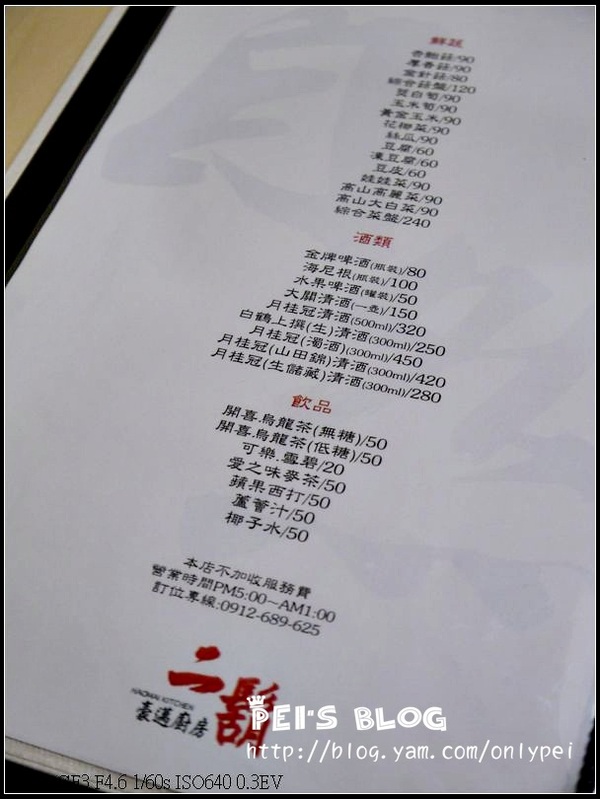 鮮蔬
杏鮑菇/90
厚香菇/90
金針菇/80
綜合菇盤/120
茭白筍/90
玉米筍/90
黃金玉米/90
花椰菜/90
絲瓜/90
豆腐/60
凍豆腐/60
豆皮/60
娃娃菜/90
高山高麗菜/90
高山大白菜/90
綜合菜盤/240
酒類
金牌啤酒(瓶裝)/80
海尼根(瓶裝)/100
水果啤酒(罐裝)/50
大關清酒(一壺)/150
月桂冠清酒(500ml)/320
白鶴上撰(生)清酒(300ml)/250
月桂冠(濁酒)(300ml)/450
月桂冠(山田錦)清酒(300ml)/420
月桂冠(生儲藏)清酒(300ml)/280
飲品
開喜.烏龍茶(無糖)/50
開喜.烏龍茶(低糖)/50
可樂.雪碧/20
愛之味麥茶/50
蘋果西打/50
蘆薈汁/50
椰子水/50
本店不加收服務費
營業時間PM5:00~AM1:00
訂位專線:0912-689-625
二鬍
HAOMAI KITCHEN
豪邁廚房
PEI'S BLOG
http://blog.yam.com/onlypei
GF3 F4.6 1/60s ISO640 0.3EV